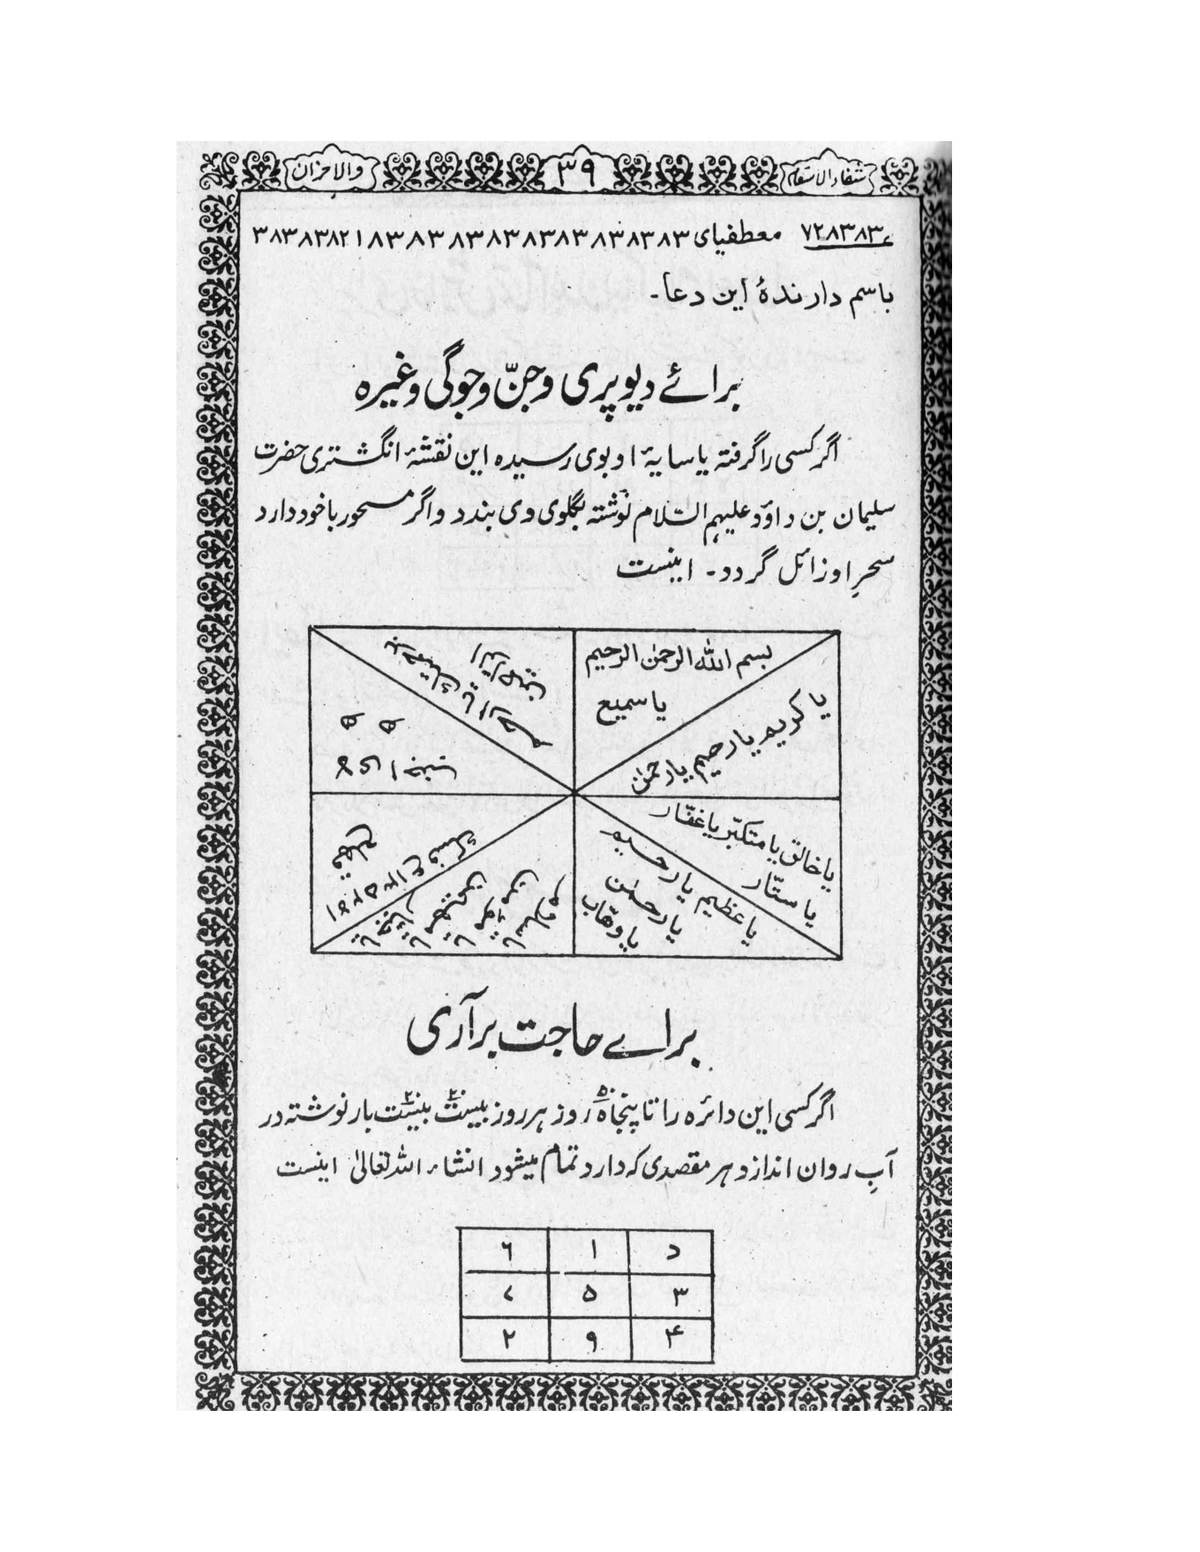 شفاء الاسقام
۳۹
والاحزان
۷۲۸۳۸۳ معطفیای ۳۸۳۸۳۸۲۱۸۳۸۳۸۳۸۳۸۳۸۳۸۳۸۳۸۳
باسم دارندهٔ این دعا۔
برائے دیو پری و جنّ و جوگی وغیرہ
اگر کسی را گرفته یا سایهٔ او بوی رسیده این نقشهٔ انگشتری حضرت
سلیمان بن داؤد علیهم السّلام نوشته بگلوی وی بندد واگر مسحور باخود دارد
سحرِ او زائل گردد۔ اینست
بسم الله الرحمٰن الرحیم
یا سمیع
یا کریم یا رحیم یا رحمٰن
یا خالق یا متکبّر یا غفّار
یا ستّار
یا عظیم یا رحیم
یا رحمٰن
یا وهّاب
برحمتک یا ارحم
الراحمین
ه ه
برائے حاجت برآری
اگر کسی این دائره را تا پنجاه ۵۰ روز هر روز بیست ۲۰ بیست ۲۰ بار نوشته در
آبِ روان اندازد هر مقصدی که دارد تمام میشود انشاء الله تعالیٰ اینست
د ۱ ۶
۳ ۵ ۷
۴ ۹ ۲